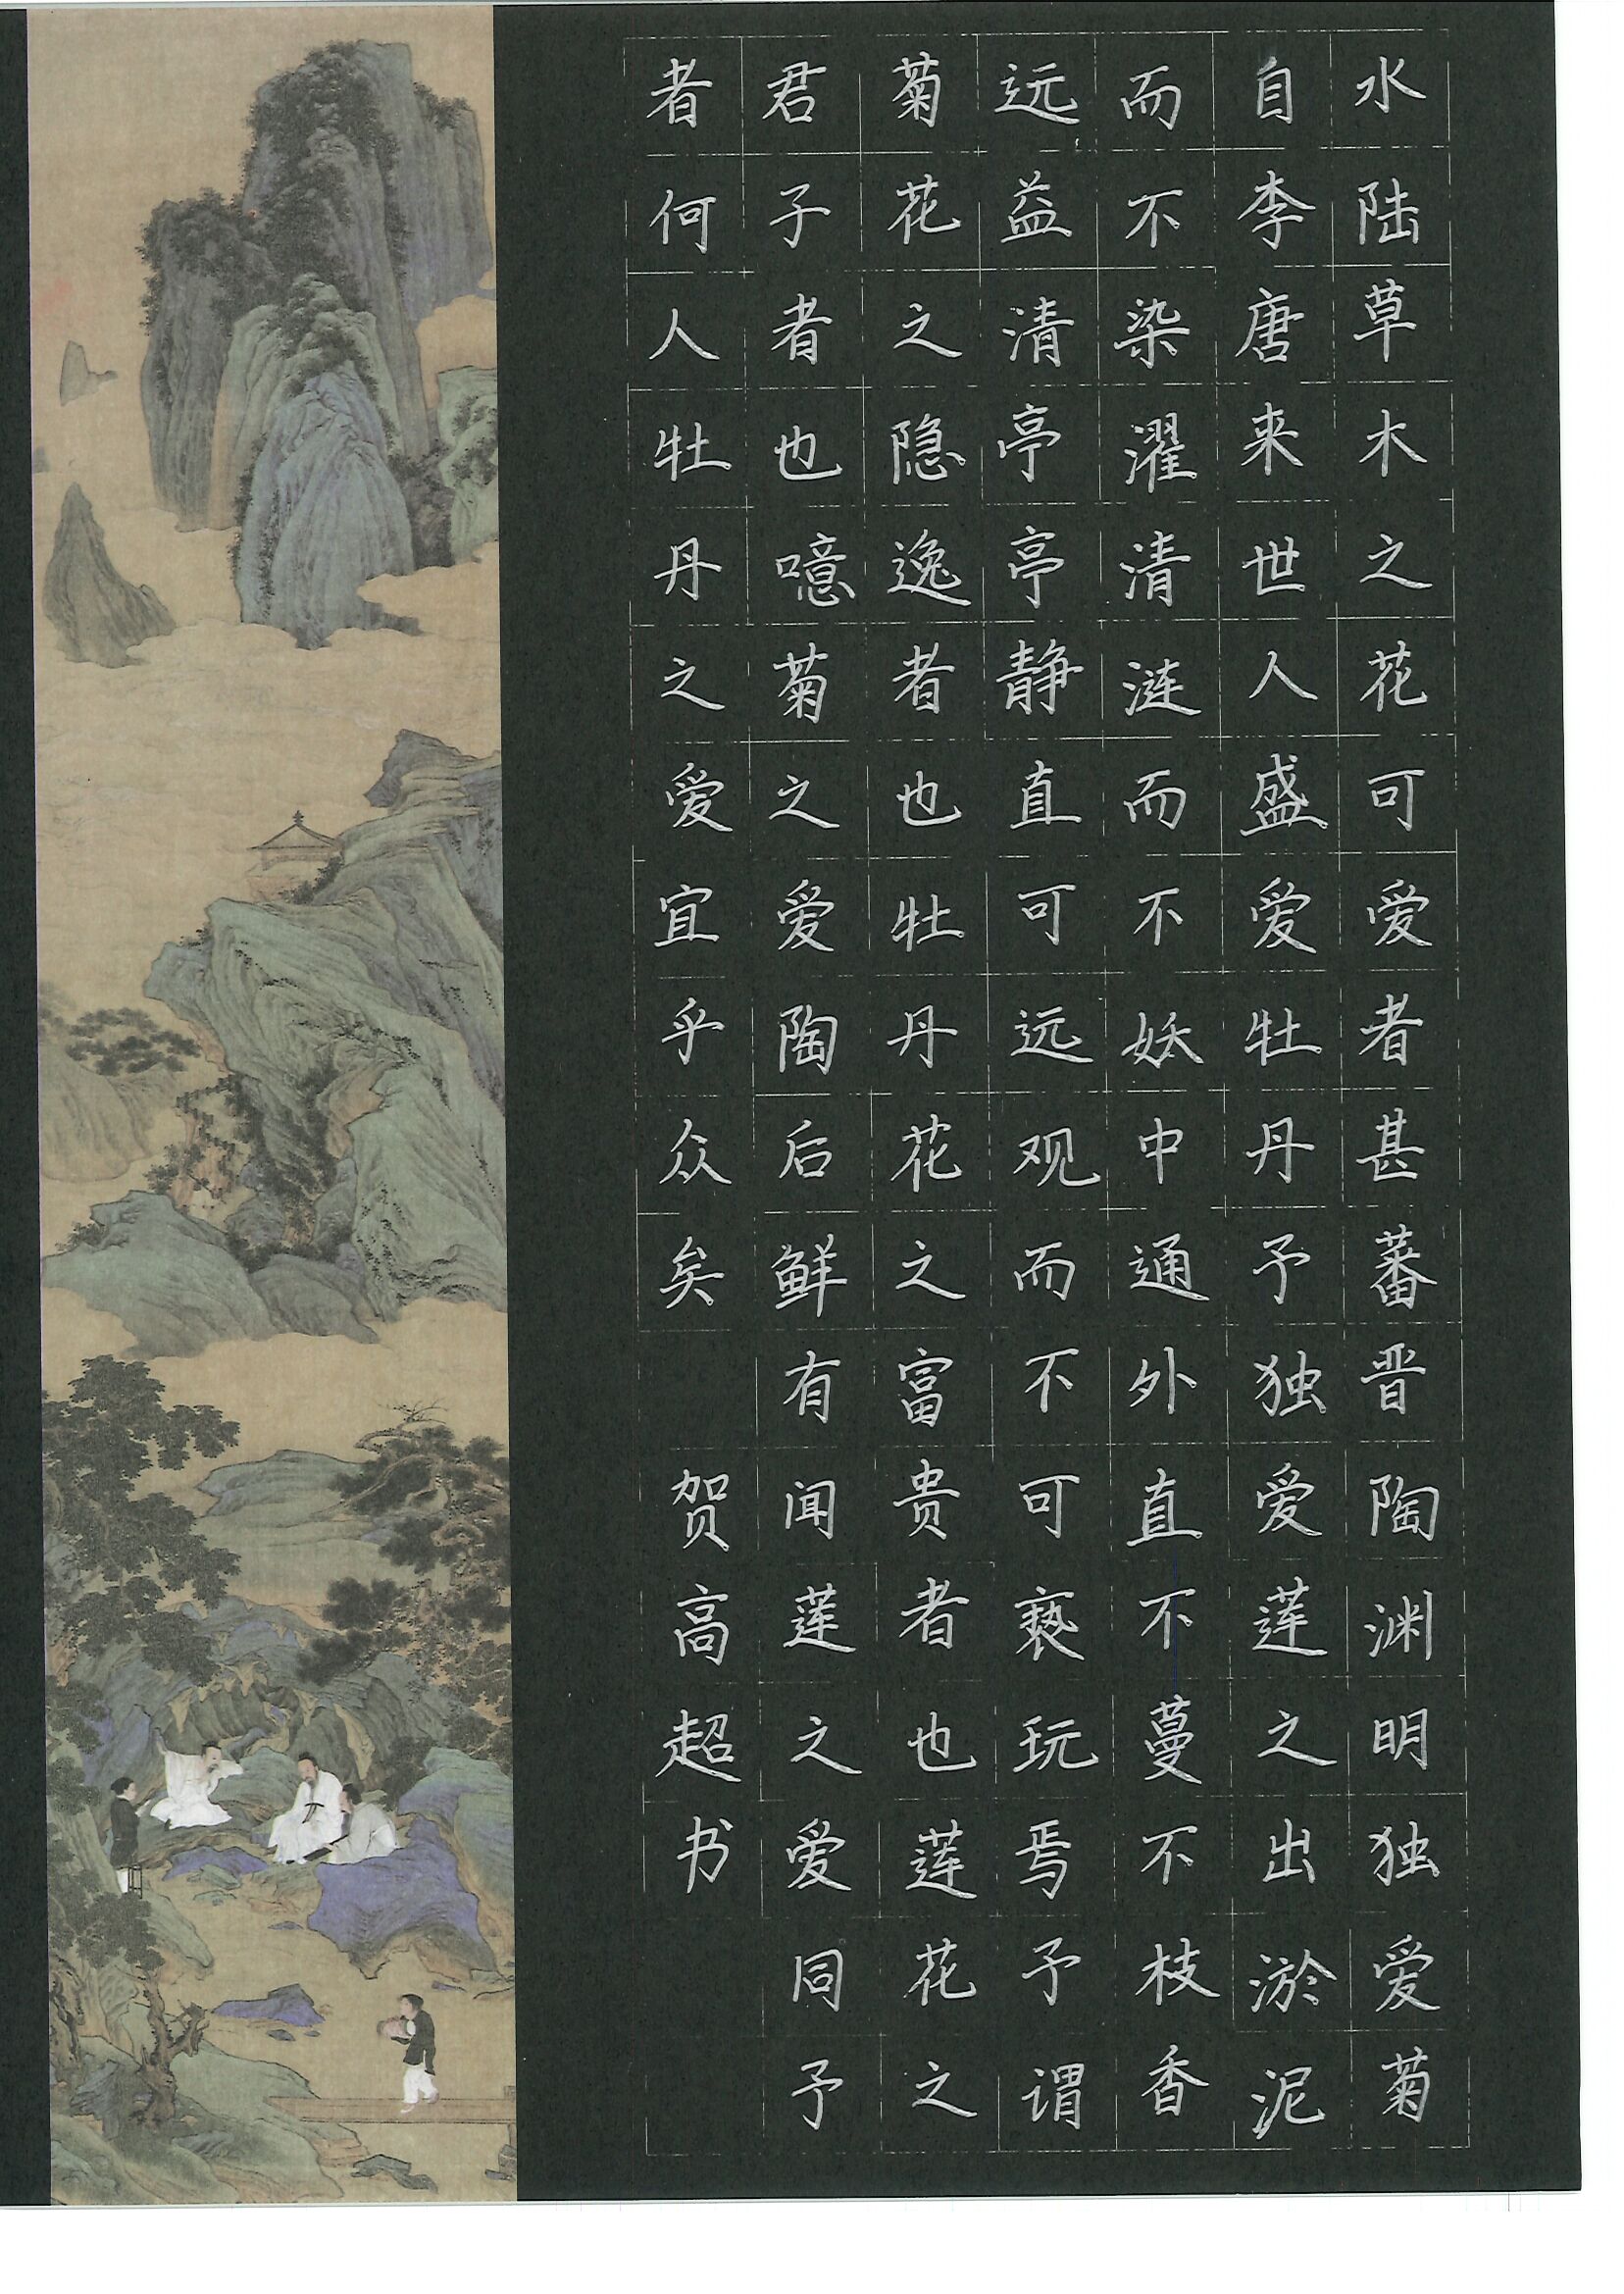 水陆草木之花可爱者甚蕃晋陶渊明独爱菊
自李唐来世人盛爱牡丹予独爱莲之出淤泥
而不染濯清涟而不妖中通外直不蔓不枝香
远益清亭亭静直可远观而不可亵玩焉予谓
菊花之隐逸者也牡丹花之富贵者也莲花之
君子者也噫菊之爱陶后鲜有闻莲之爱同予
者何人牡丹之爱宜乎众矣
贺高超书